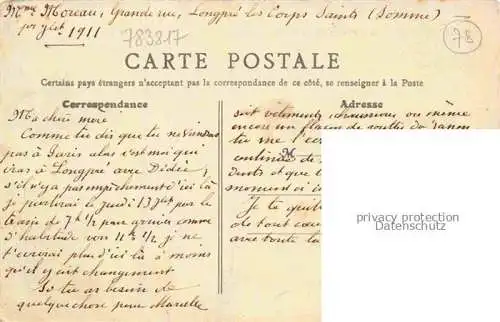 Mme Moreau, Grande rue, Longpré les Corps Saints (Somme)
1911
783817
78
CARTE POSTALE
Certains pays étrangers n'acceptant pas la correspondance de ce côté, se renseigner à la Poste
Correspondance
Adresse
Ma chère mère
Comme tu dis que tu ne viendras
pas à Paris alors c'est moi qui
irai à Longpré avec Dédée,
s'il n'y a pas empêchement d'ici là
je partirai le jeudi 13 par le
train de 7h 1/2 pour arriver comme
d'habitude vers 11h 1/2 je ne
t'écrirai plus d'ici là à moins
qu'il y ait changement
Si tu as besoin de
quelquechose pour Marcelle
soit vêtements chaussures ou même
encore un flacon de
tu me l'
M
dents et que
moment où
Je te
de tout cœur
avec toute la
privacy protection
Datenschutz